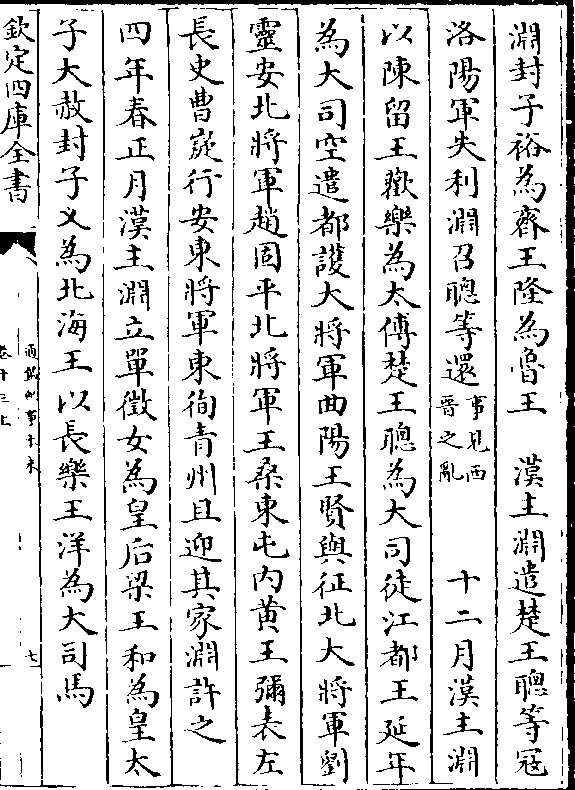 淵封子裕為齊王隆為魯王　漢主淵遣楚王聰等寇
洛陽軍失利淵召聰等還事見西晉之亂　十二月漢主淵
以陳留王歡樂為太傅楚王聰為大司徒江都王延年
為大司空遣都護大將軍曲陽王賢與征北大將軍劉
靈安北將軍趙固平北將軍王桑東屯內黃王彌表左
長史曹嶷行安東將軍東徇青州且迎其家淵許之
四年春正月漢主淵立單徵女為皇后梁王和為皇太
子大赦封子乂為北海王以長樂王洋為大司馬
欽定四庫全書
通鑑紀事本末
卷十三上
七